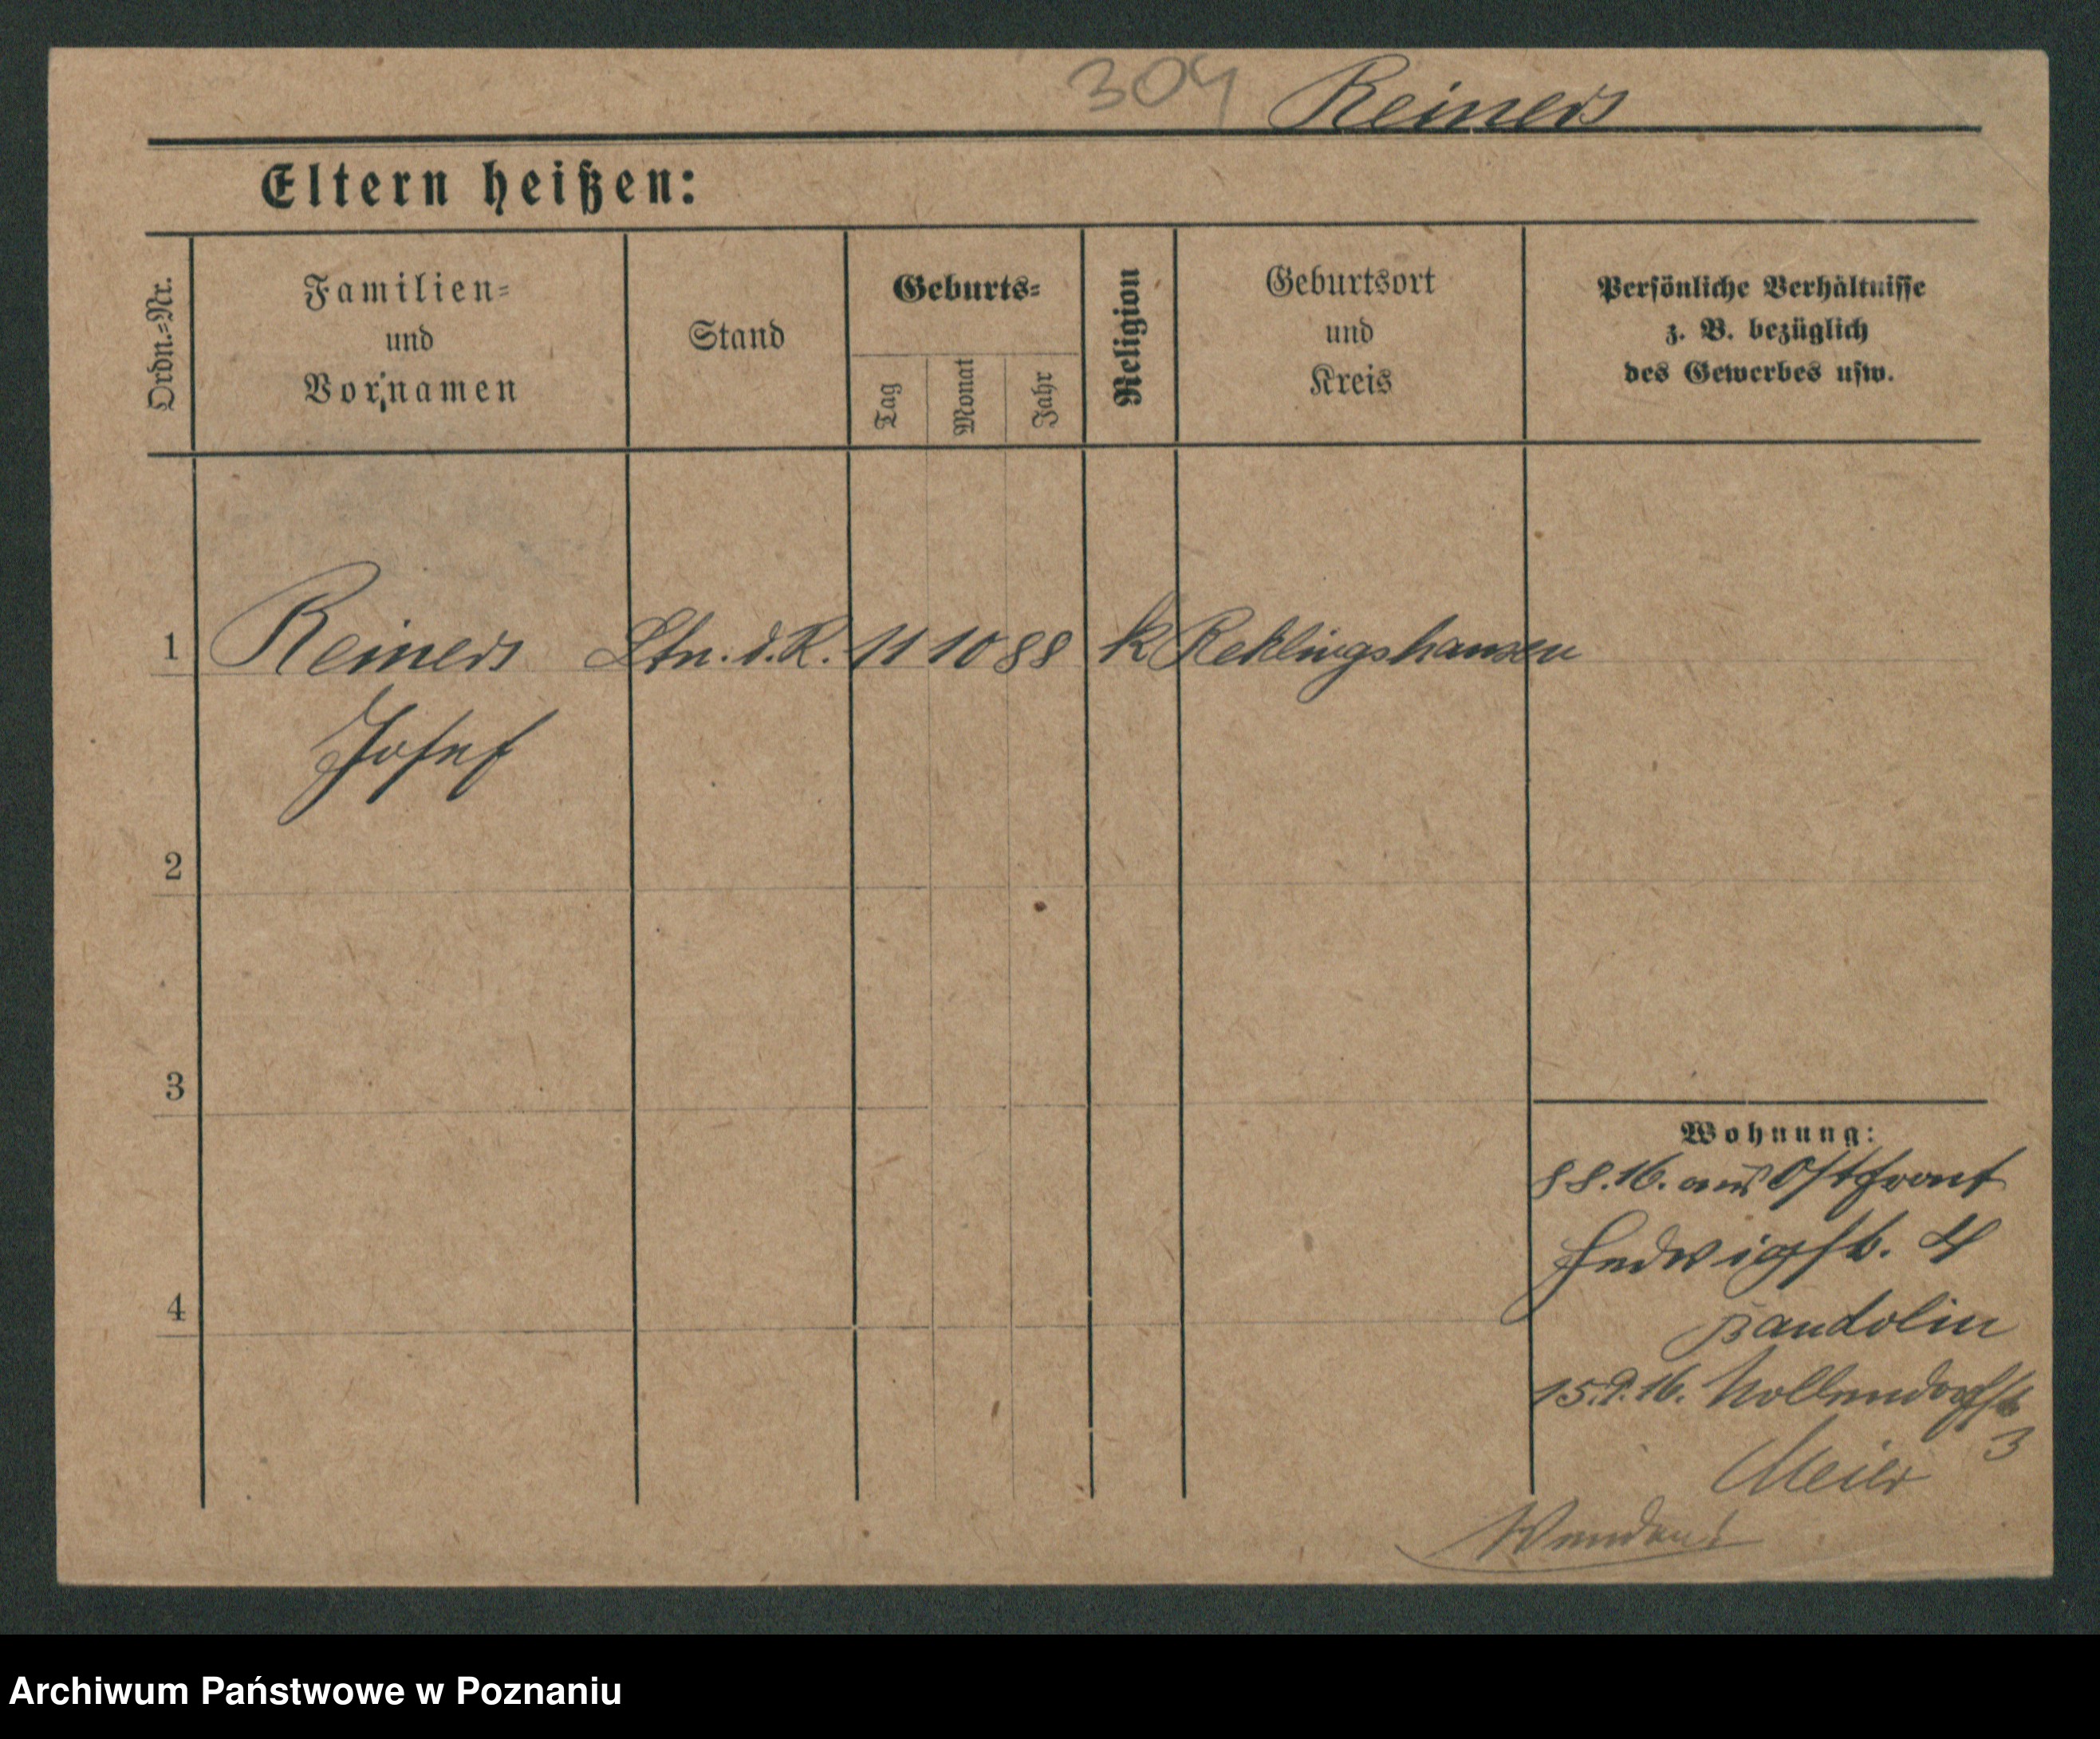 304 Reiners
Eltern heißen:
Ordn.=Nr.
Familien=
und
Vornamen
Stand
Geburts=
Tag
Monat
Jahr
Religion
Geburtsort
und
Kreis
Persönliche Verhältnisse
z. B. bezüglich
des Gewerbes usw.
1 Reiners Ltn. d. R. 11 10 88 k Reklingshausen
Josef
2
3
4
Wohnung:
8 8. 16. aus Ostfront
Hedwigstr. 4
Pandolin
15. 9. 16. Nollendorfstr
3
Meier
Wenden!
Archiwum Państwowe w Poznaniu